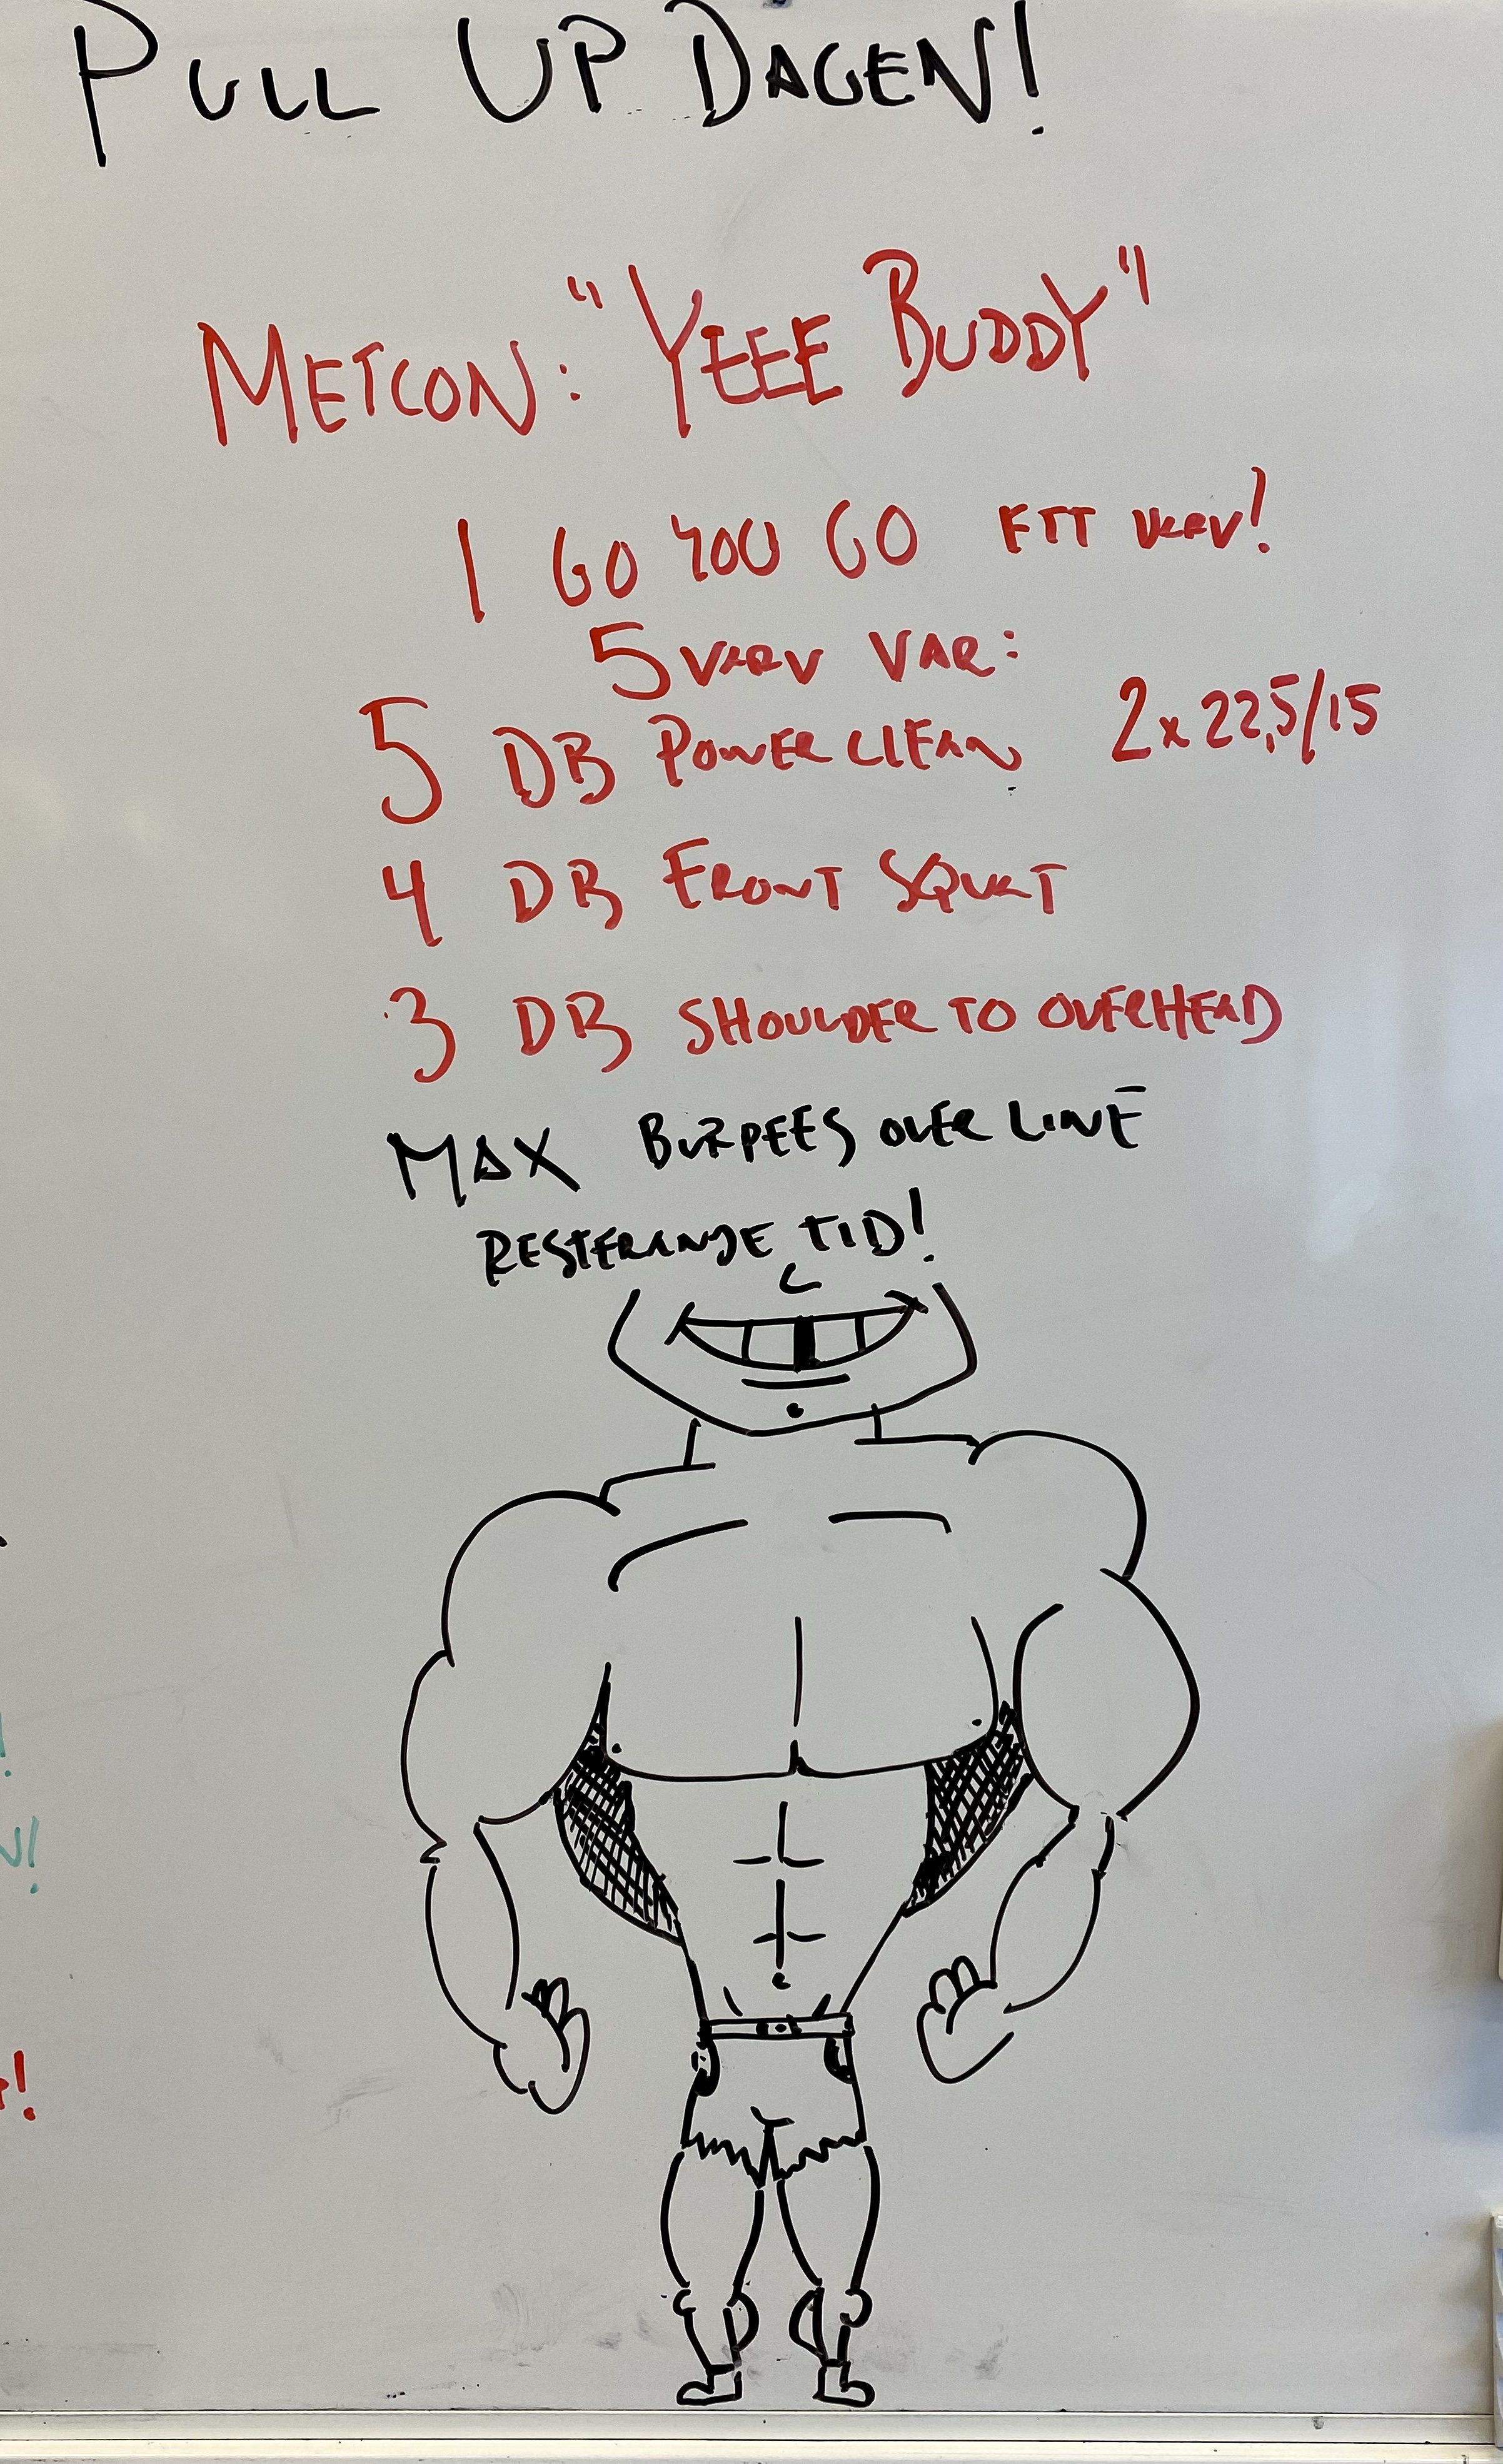 PULL UP DAGEN!
METCON: "YEEE BUDDY"
1 GO YOU GO ETT VARV!
5 VARV VAR:
5 DB POWERCLEAN 2x22,5/15
4 DB FRONT SQUAT
3 DB SHOULDER TO OVERHEAD
MAX BURPEES OVER LINE
RESTERANDE TID!